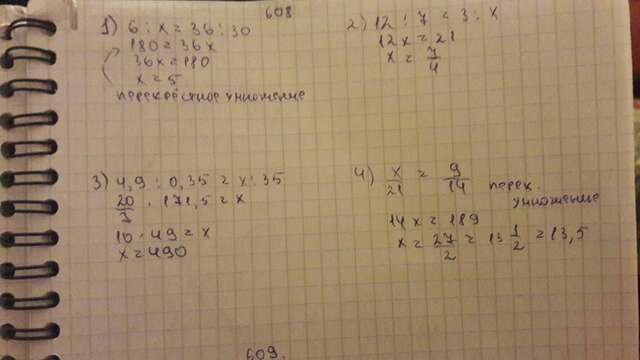 608
1) 6 : x = 36 : 30
180 = 36x
36x = 180
x = 5
перекрёстное умножение
2) 12 : 7 = 3 : x
12x = 21
x = 7/4
3) 4,9 : 0,35 = x : 35
20/7 · 171,5 = x
10 · 49 = x
x = 490
4) x/21 = 9/14 перек.
умножение
14x = 189
x = 27/2 = 13 1/2 = 13,5
609.